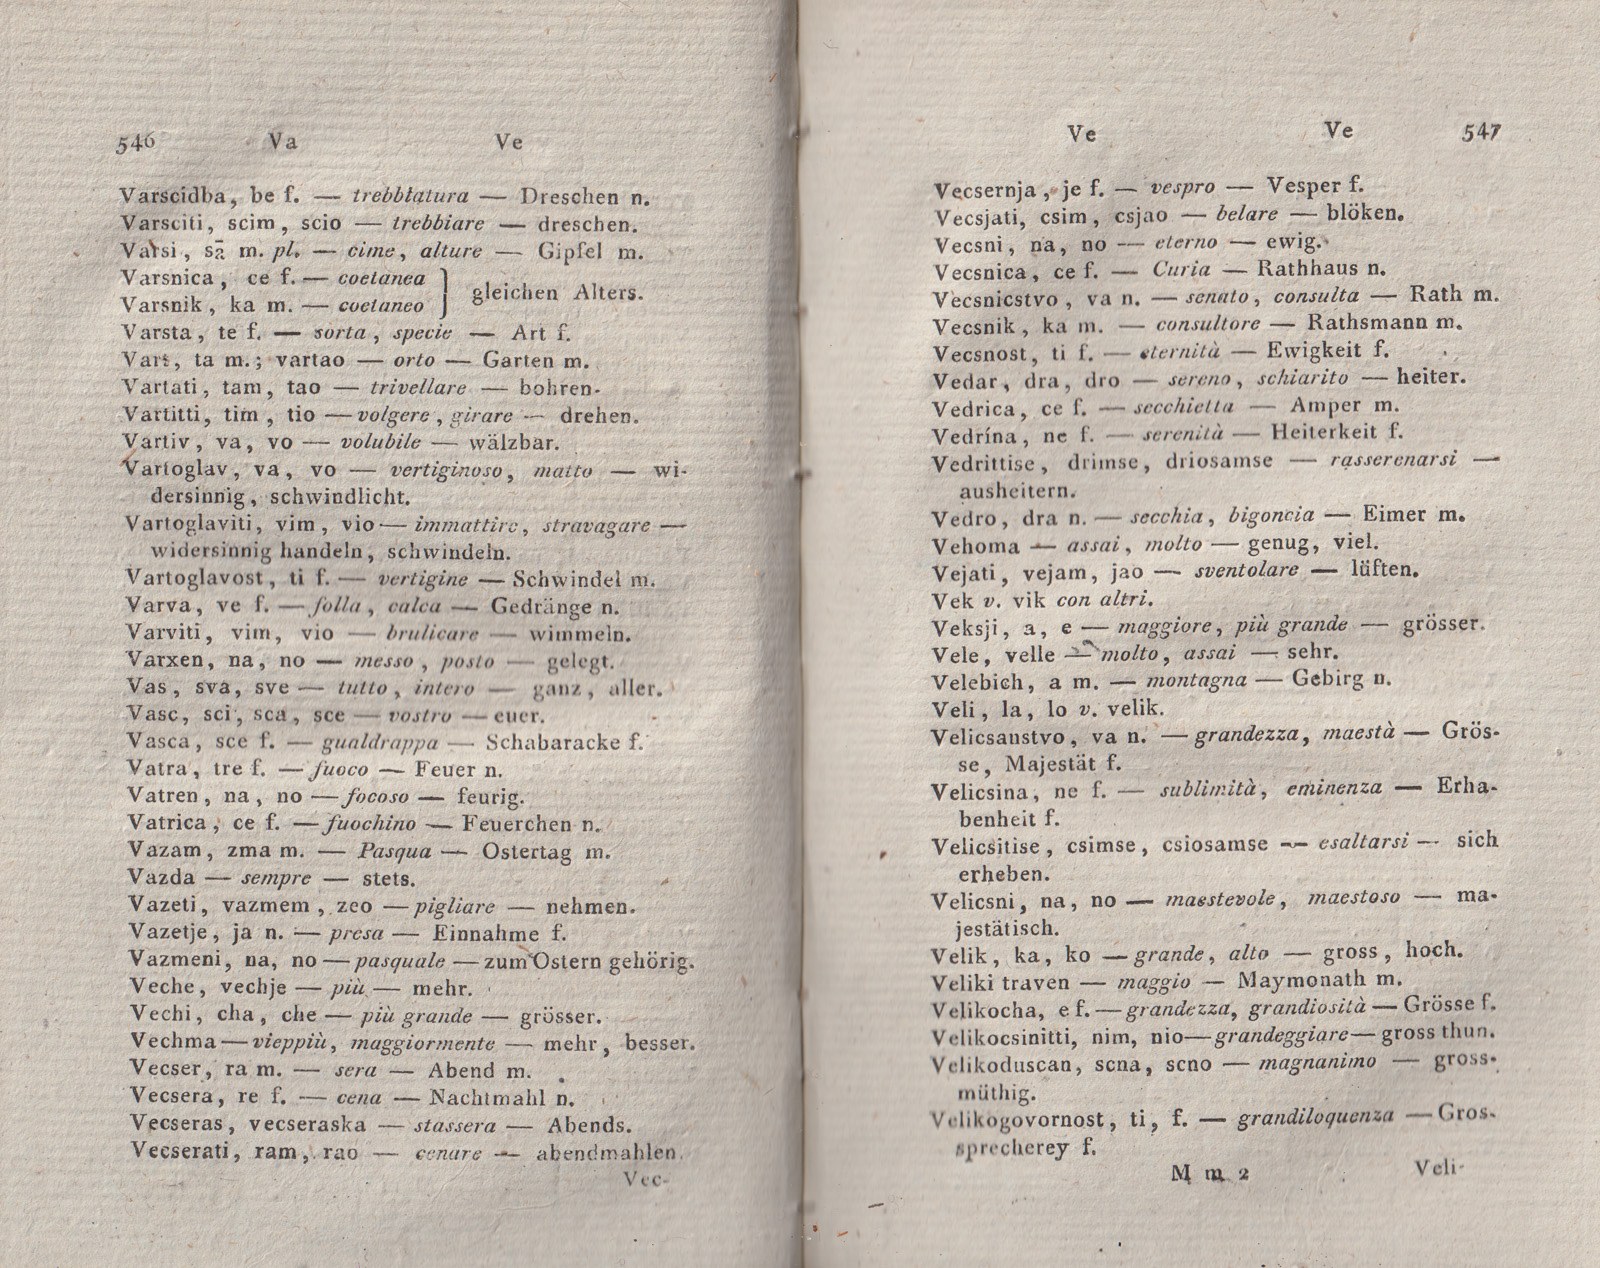 546 Va Ve
Varscidba, be f. — trebbiatura — Dreschen n.
Varsciti, scim, scio — trebbiare — dreschen.
Varsi, sā m. pl. — cime, alture — Gipfel m.
Varsnica, ce f. — coetanea
Varsnik, ka m. — coetaneo } gleichen Alters.
Varsta, te f. — sorta, specie — Art f.
Vart, ta m.; vartao — orto — Garten m.
Vartati, tam, tao — trivellare — bohren.
Vartitti, tim, tio — volgere, girare — drehen.
Vartiv, va, vo — volubile — wälzbar.
Vartoglav, va, vo — vertiginoso, matto — wi-
dersinnig, schwindlicht.
Vartoglaviti, vim, vio — immattire, stravagare —
widersinnig handeln, schwindeln.
Vartoglavost, ti f. — vertigine — Schwindel m.
Varva, ve f. — folla, calca — Gedränge n.
Varviti, vim, vio — brulicare — wimmeln.
Varxen, na, no — messo, posto — gelegt.
Vas, sva, sve — tutto, intero — ganz, aller.
Vasc, sci, sca, sce — vostro — euer.
Vasca, sce f. — gualdrappa — Schabaracke f.
Vatra, tre f. — fuoco — Feuer n.
Vatren, na, no — focoso — feurig.
Vatrica, ce f. — fuochino — Feuerchen n.
Vazam, zma m. — Pasqua — Ostertag m.
Vazda — sempre — stets.
Vazeti, vazmem, zeo — pigliare — nehmen.
Vazetje, ja n. — presa — Einnahme f.
Vazmeni, na, no — pasquale — zum Ostern gehörig.
Veche, vechje — più — mehr.
Vechi, cha, che — più grande — grösser.
Vechma — vieppiù, maggiormente — mehr, besser.
Vecser, ra m. — sera — Abend m.
Vecsera, re f. — cena — Nachtmahl n.
Vecseras, vecseraska — stassera — Abends.
Vecserati, ram, rao — cenare — abendmahlen.
Vec-
Ve Ve 547
Vecsernja, je f. — vespro — Vesper f.
Vecsjati, csim, csjao — belare — blöken.
Vecsni, na, no — eterno — ewig.
Vecsnica, ce f. — Curia — Rathhaus n.
Vecsnicstvo, va n. — senato, consulta — Rath m.
Vecsnik, ka m. — consultore — Rathsmann m.
Vecsnost, ti f. — eternità — Ewigkeit f.
Vedar, dra, dro — sereno, schiarito — heiter.
Vedrica, ce f. — secchietta — Amper m.
Vedrína, ne f. — serenità — Heiterkeit f.
Vedrittise, drimse, driosamse — rasserenarsi —
ausheitern.
Vedro, dra n. — secchia, bigoncia — Eimer m.
Vehoma — assai, molto — genug, viel.
Vejati, vejam, jao — sventolare — lüften.
Vek v. vik con altri.
Veksji, a, e — maggiore, più grande — grösser.
Vele, velle — molto, assai — sehr.
Velebich, a m. — montagna — Gebirg n.
Veli, la, lo v. velik.
Velicsanstvo, va n. — grandezza, maestà — Grös-
se, Majestät f.
Velicsina, ne f. — sublimità, eminenza — Erha-
benheit f.
Velicsitise, csimse, csiosamse — esaltarsi — sich
erheben.
Velicsni, na, no — maestevole, maestoso — ma-
jestätisch.
Velik, ka, ko — grande, alto — gross, hoch.
Veliki traven — maggio — Maymonath m.
Velikocha, e f. — grandezza, grandiosità — Grösse f.
Velikocsinitti, nim, nio — grandeggiare — gross thun.
Velikoduscan, scna, scno — magnanimo — gross-
müthig.
Velikogovornost, ti, f. — grandiloquenza — Gros-
sprecherey f.
M m 2 Veli-